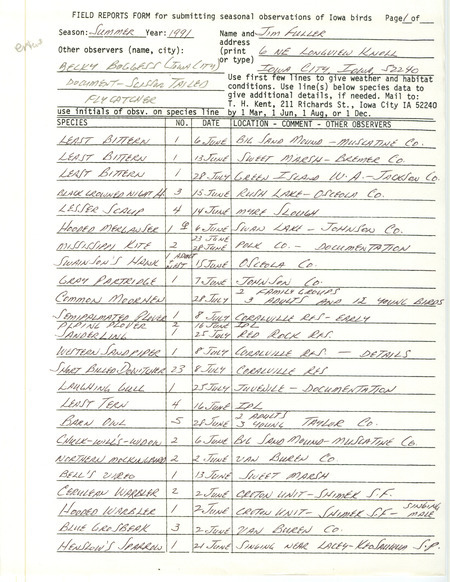 FIELD REPORTS FORM for submitting seasonal observations of Iowa birds Page 1 of
Season: Summer Year: 1991 Name and Jim Fuller
address
Other observers (name, city): (print 6 NE Longview Knoll
or type)
Becky Boggess (Iowa City) Iowa City Iowa, 52240
Document - Scissor Tailed
Flycatcher
Use first few lines to give weather and habitat
conditions. Use line(s) below species data to
give additional details, if needed. Mail to:
T. H. Kent, 211 Richards St., Iowa City IA 52240
use initials of obsv. on species line by 1 Mar, 1 Jun, 1 Aug, or 1 Dec.
SPECIES NO. DATE LOCATION - COMMENT - OTHER OBSERVERS
Least Bittern 1 6 June Big Sand Mound - Muscatine Co.
Least Bittern 1 13 June Sweet Marsh - Bremer Co.
Least Bittern 1 28 July Green Island W.A - Jackson Co.
Black Crowned Night H. 3 15 June Rush Lake - Osceola Co.
Lesser Scaup 4 14 June Myre Slough
Hooded Merganser 1 ♀ 6 June Swan Lake - Johnson Co.
Mississippi Kite 2 23 June 28 June Polk Co. - Documentation
Swainson's Hawk 1 adult nest 15 June Osceola Co.
Gray Partridge 1 7 June Johnson Co.
Common Moorhen 28 July 2 family groups 3 adults and 12 young birds
Semipalmated Plover 1 8 July Coralville Res - early
Piping Plover 2 16 June IPL
Sanderling 1 25 July Red Rock Res.
Western Sandpiper 1 8 July Coralville Res - details
Short Billed Dowitcher 23 8 July Coralville Res
Laughing Gull 1 25 July Juvenile - Documentation
Least Tern 4 16 June IPL
Barn Owl 5 28 June 2 adults 3 young Taylor Co.
Chuck-will's-widow 2 6 June Big Sand Mound - Muscatine Co.
Northern Mockingbird 2 2 June Van Buren Co.
Bell's Vireo 1 13 June Sweet Marsh
Cerulean Warbler 2 2 June Croton Unit - Shimek S.F.
Hooded Warbler 1 2 June Croton Unit - Shimek S.F - singing male
Blue Grosbeak 3 2 June Van Buren Co.
Henslow's Sparrow 1 21 June Singing near Lacey-Keosauqua S.P.